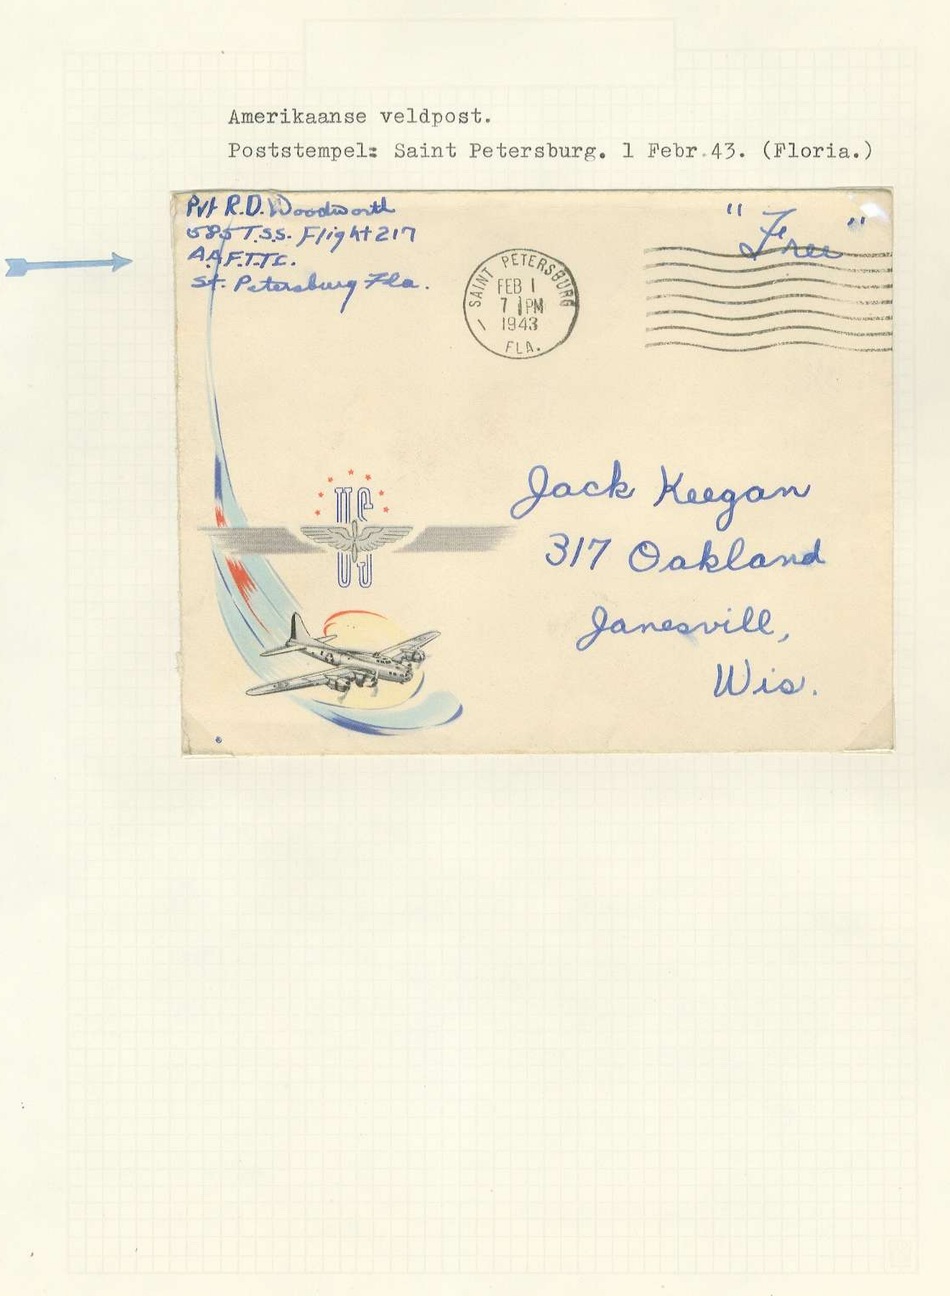 Amerikaanse veldpost.
Poststempel: Saint Petersburg. 1 Febr.43. (Floria.)
Pvt R.D. Woodworth
585 T.S.S. Flight 217
A.A.F.T.T.C.
St. Petersburg Fla.
"Free"
SAINT PETERSBURG
FEB 1
7 PM
1943
FLA.
Jack Keegan
317 Oakland
Janesvill,
Wis.